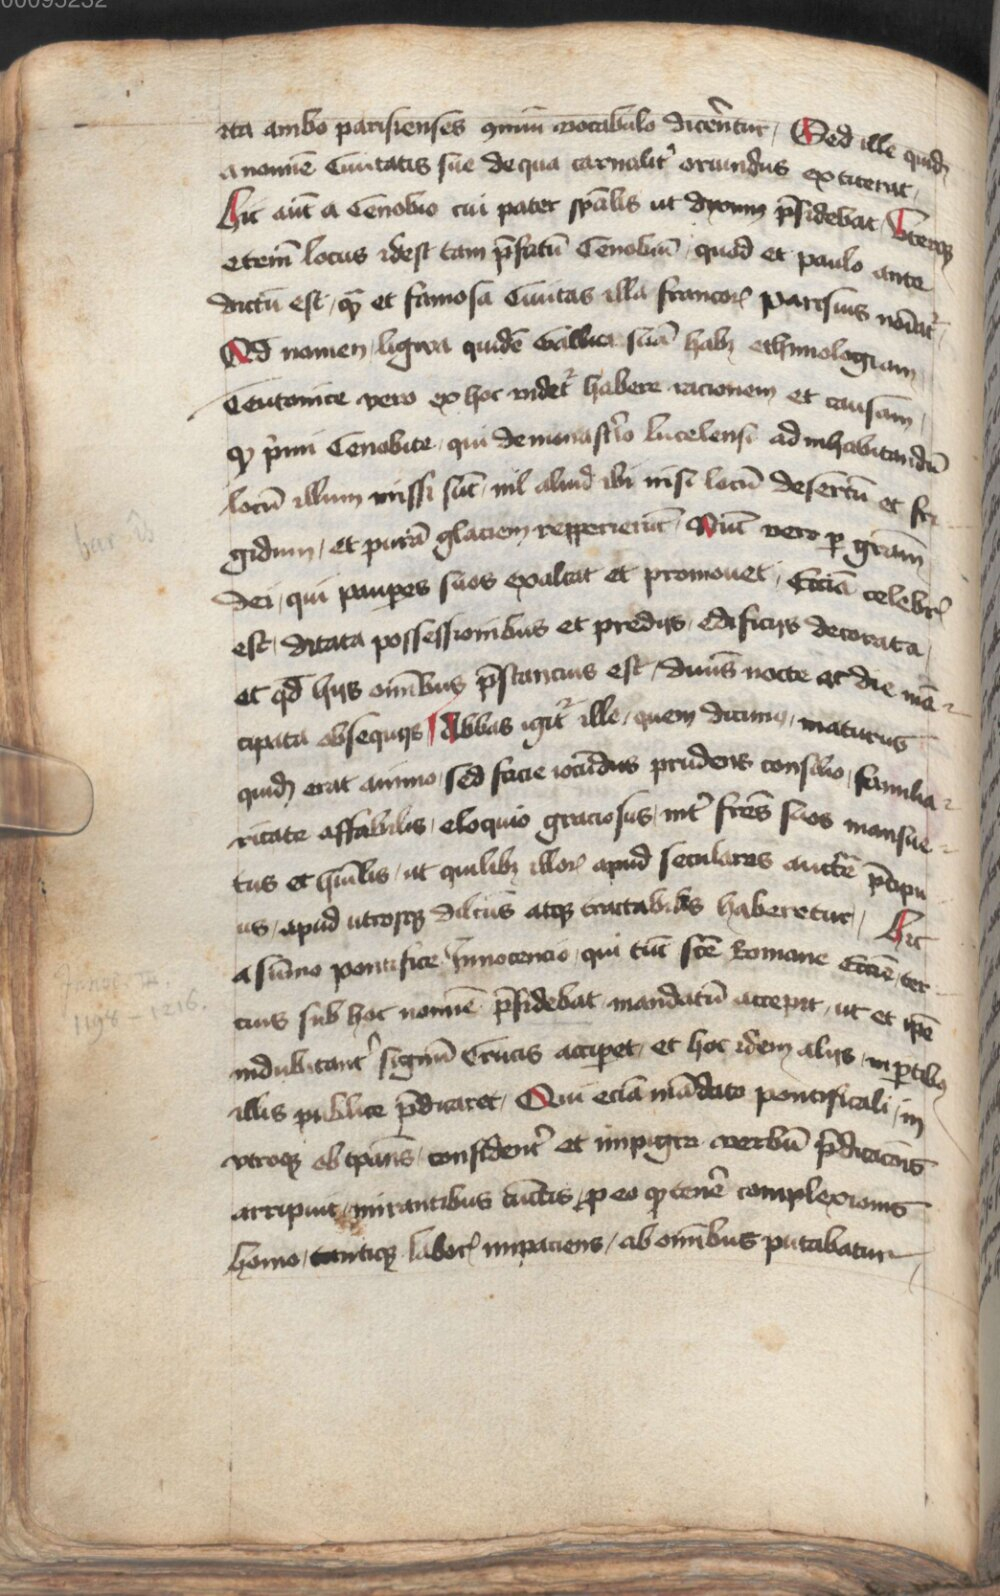 00095232
ita ambo parisienses ꝯmuni vocabulo dicerentur / Sed ille quidē
a nomīe Ciuitatis sue de qua carnalit᷑ oriundus extiterat /
Hic aūt a Cenobio cui pater spūalis ut diximus p̄sidebat / Uterqꝫ
etenī locus idest tam p̄fatū Cenobiū / quod et paulo ante
dictū est / ꝙ̄ et famosa Ciuitas illa francoꝝ parisius noīat᷑ /
Qd̄ nomen / ligwa quidē Gallica suā habꝫ ethimologiam
Teutonice vero ex hoc videt᷑ habere racionem et causam /
ꝙ p̄mi Cenobite / qui de monast᷑io lucelensi ad inhabitandū
locū illum missi sūt / nil aliud ibi nisi locū desertū et fri
gidum / et purā glaciem reppererūt / Nūc vero ꝑ grām
dei / qui pauꝑes suos exaltat et promouet / Eccīa celebr᷑
est / ditata possessionibus et predijs / edificijs decorata /
et qd̄ hijs oīnibus p̄stancius est / diuīs nocte ac die mā
cipata obsequijs / Abbas igit᷑ ille / quem dicimꝰ / maturus
quidē erat animo / sed facie iocūdus prudens consilio / familia
ritate affabilis / eloquio graciosus / int᷑ fr̄es suos mansue
tus et hūilis / ut quilibꝫ illoꝝ apud seculares auctē p̄cipu
us / apud utrosqꝫ dilcūs atqꝫ tractabilis haberetur / Hic
a sūmo pontifice Innocencio / qui tūc scē Romane Eccīe / ter
cius sub hoc nomīe p̄sidebat / mandatū accepit / ut et ip̄e
indubitant᷑ signū Crucis acciꝑet / et hoc idem alijs / in ꝑtibꝰ
illis publice p̄dicaret / Qui eciā mādato pontificali / in
vtroqꝫ obtꝑans / confident᷑ et impigre verbū p̄dicacōnis
arripuit / mirantibus cūctis / ꝓ eo ꝙ tenē complexionis
homo / tantiqꝫ laboꝝ impaciens / ab oīnibus putabatur
Innoc. III.
1198 – 1216.